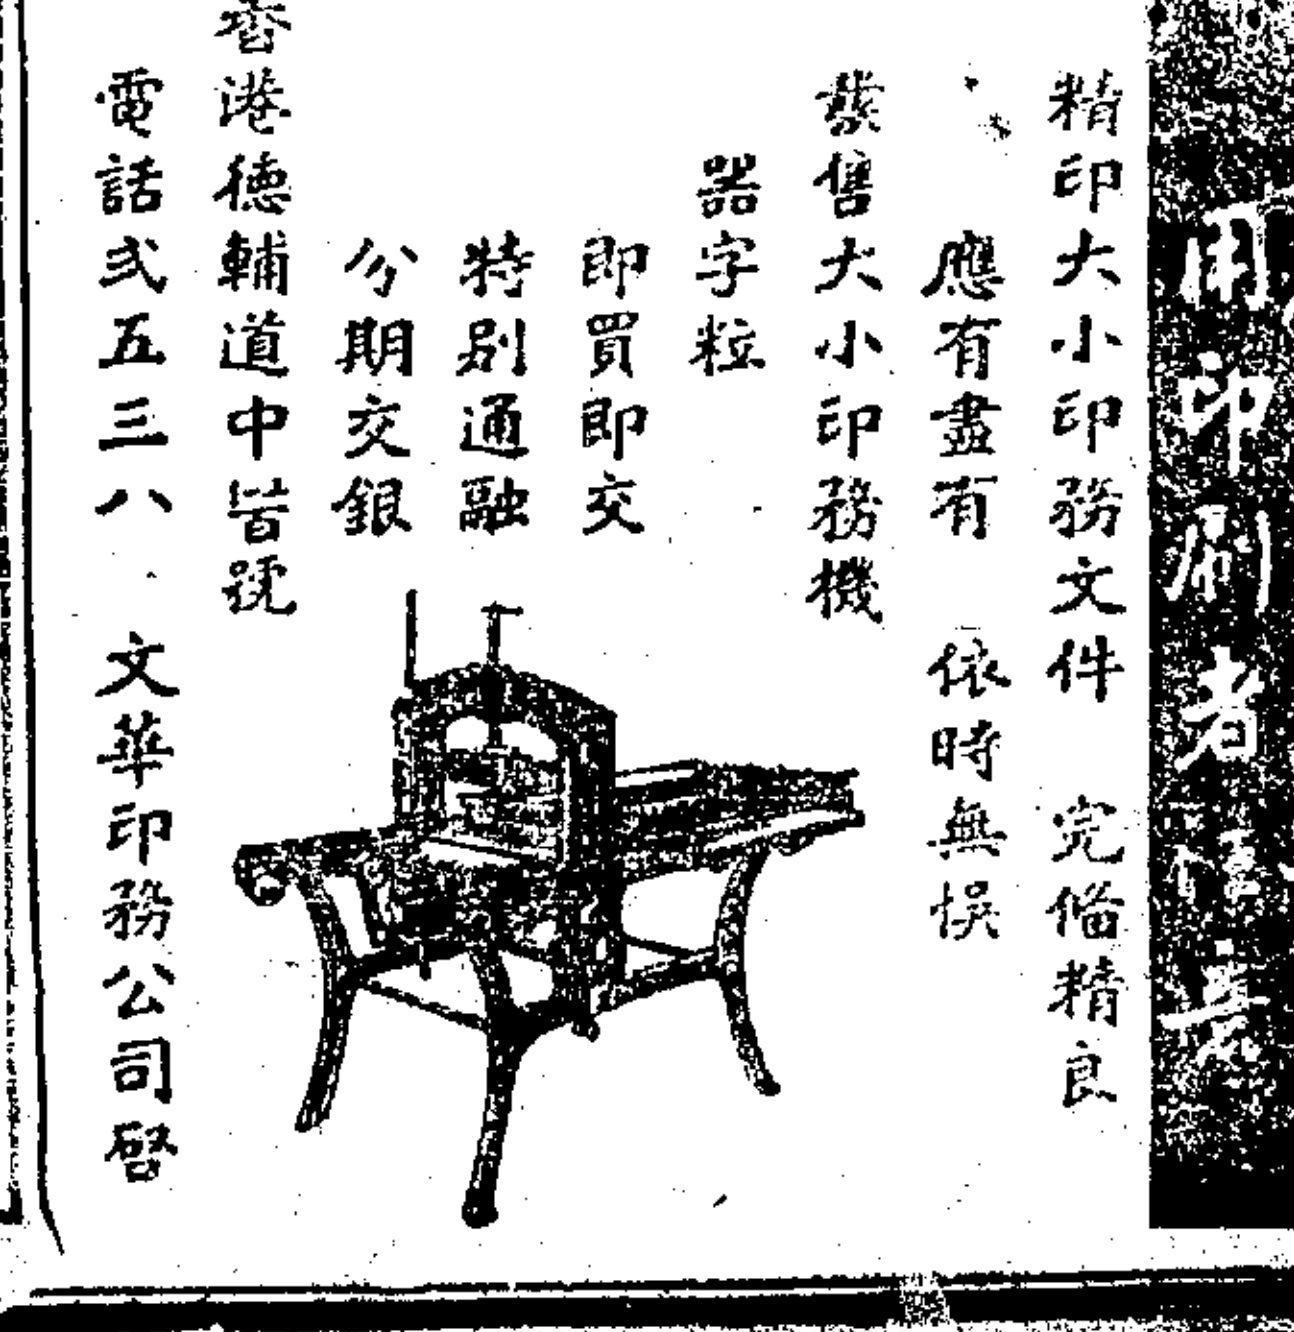 用印刷者注意
精印大小印務文件 完俻精良
應有盡有 依時無悞
發售大小印務機
器字粒
即買即交
特別通融
分期交銀
香港德輔道中 號
電話弍五三八 文華印務公司啓